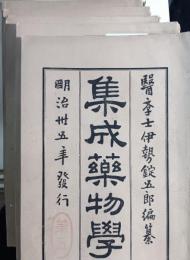 醫學士伊勢錠五郎編纂
集成藥物學
明治卅五年發行